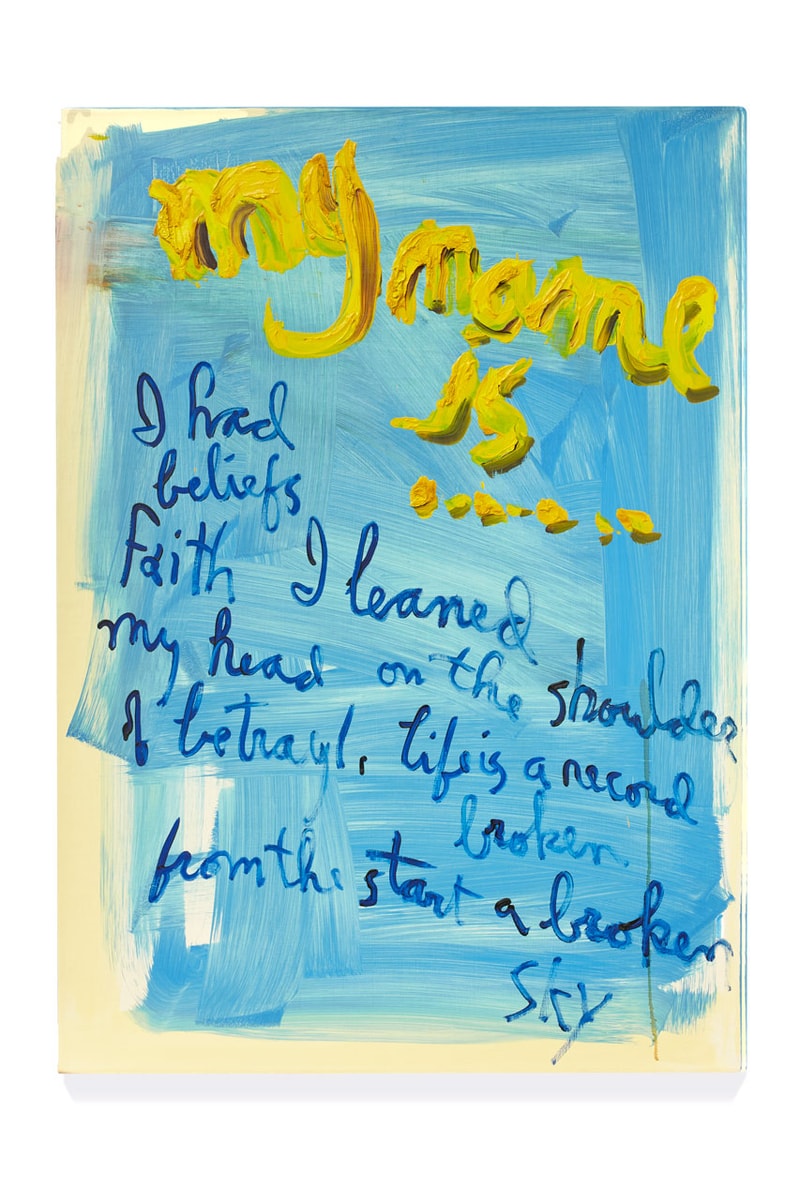 my name
is
......
I had
beliefs
Faith I leaned
my head on the shoulder
of betrayl, life is a record
broken
from the start a broken
sky